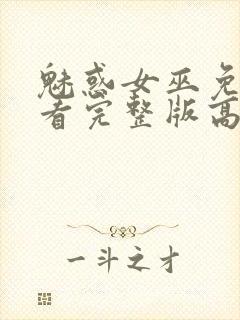 魅惑女巫免
看完整版高
一斗之才